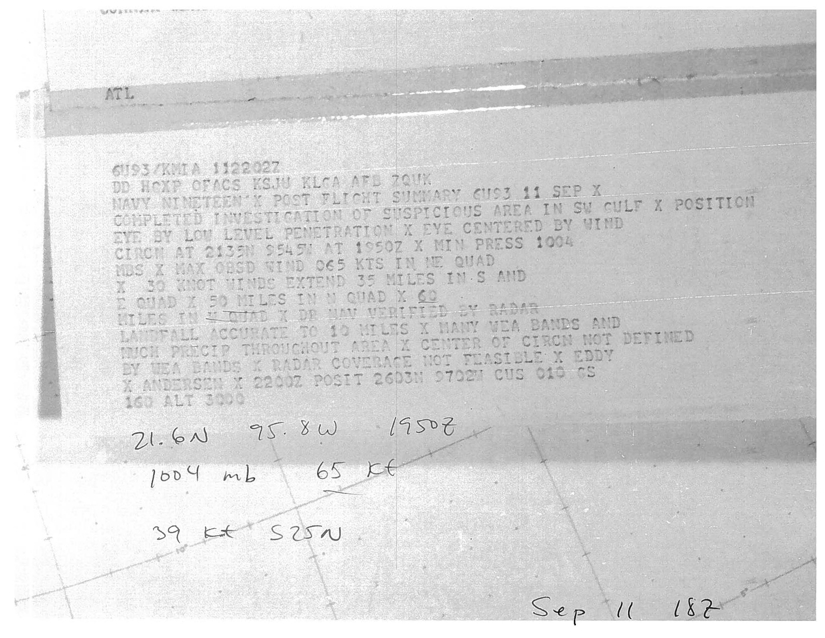 ATL
GU93/KMIA 112202Z
DD HCXP OFACS KSJU KLCA AFB ZQUK
NAVY NINETEEN X POST FLIGHT SUMMARY GU93 11 SEP X
COMPLETED INVESTIGATION OF SUSPICIOUS AREA IN SW GULF X POSITION
EYE BY LOW LEVEL PENETRATION X EYE CENTERED BY WIND
CIRCN AT 2135N 9545W AT 1950Z X MIN PRESS 1004
MBS X MAX OBSD WIND 065 KTS IN NE QUAD
X 30 KNOT WINDS EXTEND 35 MILES IN S AND
E QUAD X 50 MILES IN N QUAD X 60
MILES IN W QUAD X DR NAV VERIFIED BY RADAR
LANDFALL ACCURATE TO 10 MILES X MANY WEA BANDS AND
MUCH PRECIP THROUGHOUT AREA X CENTER OF CIRCN NOT DEFINED
BY WEA BANDS X RADAR COVERAGE NOT FEASIBLE X EDDY
X ANDERSEN X 2200Z POSIT 2603N 9702W CUS 010 GS
160 ALT 3000
21.6N 95.8W 1950Z
1004 mb 65 kt
39 kt S25N
Sep 11 18Z